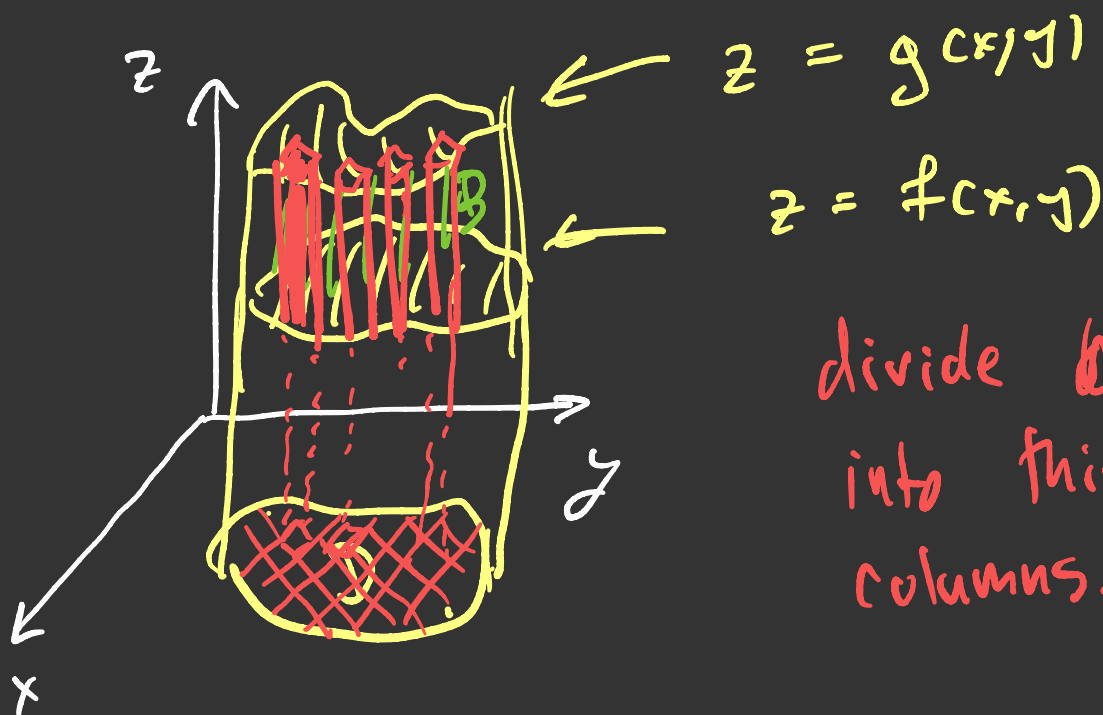 z
z = g(x, y)
z = f(x, y)
B
divide
into
columns.
y
D
x